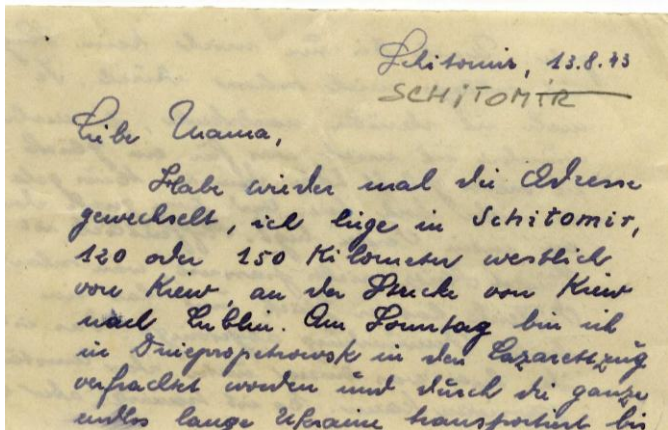 Schitomir, 13.8.43
SCHiTOMiR
Liebe Mama,
Habe wieder mal die Adresse
gewechselt, ich liege in Schitomir,
120 oder 150 Kilometer westlich
von Kiew, an der Strecke von Kiew
nach Lublin. Am Sonntag bin ich
in Dniepropetrowsk in den Lazarettzug
verfrachtet worden und durch die ganze
endlos lange Ukraine transportiert bis